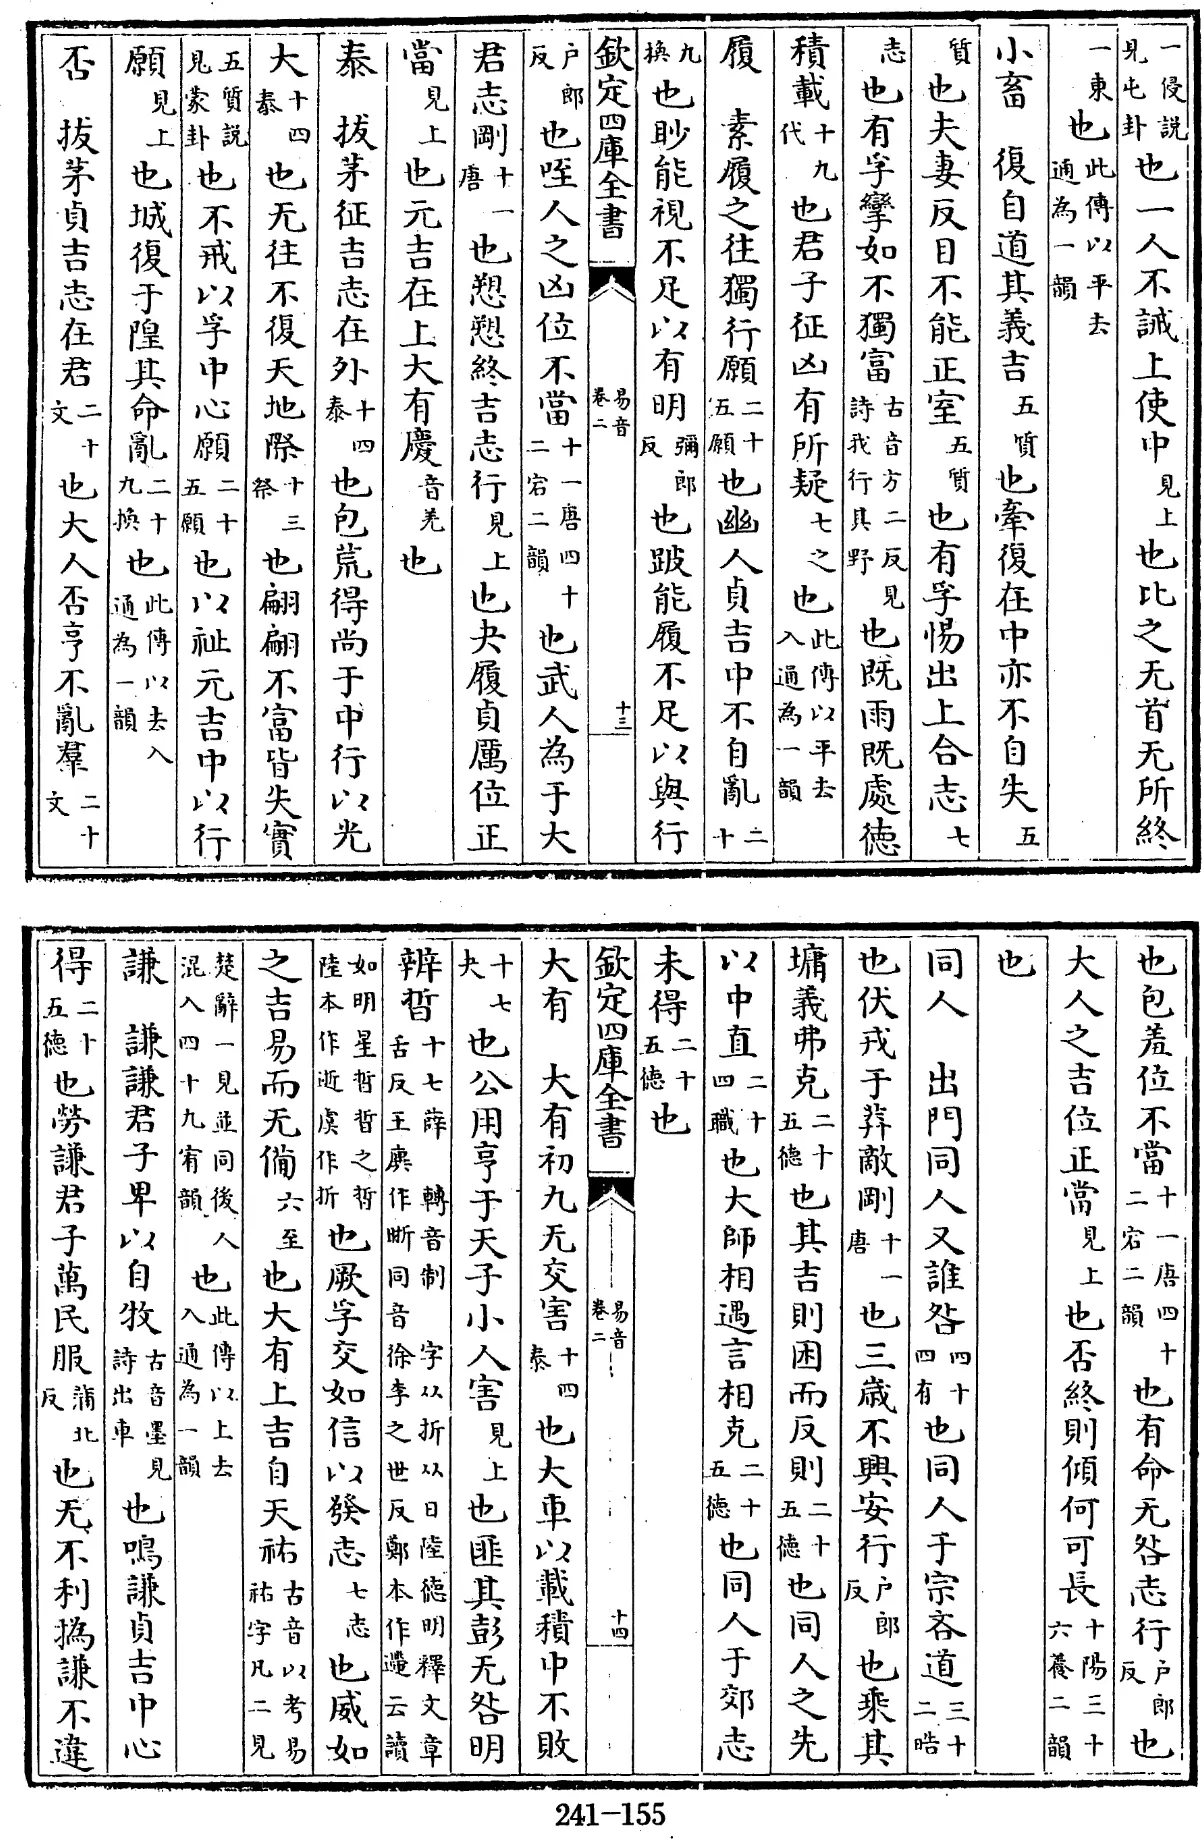 一侵說見屯卦也一人不誡上使中見上也比之无首无所終
一東也此傳以平去通為一韻
小畜　復自道其義吉五質也牽復在中亦不自失五
質也夫妻反目不能正室五質也有孚惕出上合志七
志也有孚攣如不獨富古音方二反見詩我行其野也既雨既處德
積載十九代也君子征凶有所疑七之也此傳以平去入通為一韻
履　素履之往獨行願二十五願也幽人貞吉中不自亂二十
九換也眇能視不足以有明彌郎反也跛能履不足以與行
欽定四庫全書　易音卷二　十三
户郎反也咥人之凶位不當十一唐四十二宕二韻也武人為于大
君志剛十一唐也愬愬終吉志行見上也夬履貞厲位正
當見上也元吉在上大有慶音羌也
泰　拔茅征吉志在外十四泰也包荒得尚于中行以光
大十四泰也无往不復天地際十三祭也翩翩不富皆失實
五質說見蒙卦也不戒以孚中心願二十五願也以祉元吉中以行
願見上也城復于隍其命亂二十九換也此傳以去入通為一韻
否　拔茅貞吉志在君二十文也大人否亨不亂羣二十文
也包羞位不當十一唐四十二宕二韻也有命无咎志行户郎反也
大人之吉位正當見上也否終則傾何可長十陽三十六養二韻
也
同人　出門同人又誰咎四十四有也同人于宗吝道三十二晧
也伏戎于莽敵剛十一唐也三歲不興安行户郎反也乘其
墉義弗克二十五德也其吉則困而反則二十五德也同人之先
以中直二十四職也大師相遇言相克二十五德也同人于郊志
未得二十五德也
欽定四庫全書　易音卷二　十四
大有　大有初九无交害十四泰也大車以載積中不敗
十七夬也公用亨于天子小人害見上也匪其彭无咎明
辨晢十七薛轉音制字从折从日陸德明釋文章舌反王廙作晣同音徐李之世反鄭本作遰云讀
如明星晢晢之晢陸本作逝虞作折也厥孚交如信以發志七志也威如
之吉易而无備六至也大有上吉自天祐古音以考易祐字凡二見
楚辭一見並同後人混入四十九宥韻也此傳以上去入通為一韻
謙　謙謙君子卑以自牧古音墨見詩出車也鳴謙貞吉中心
得二十五德也勞謙君子萬民服蒲北反也无不利撝謙不違
241-155